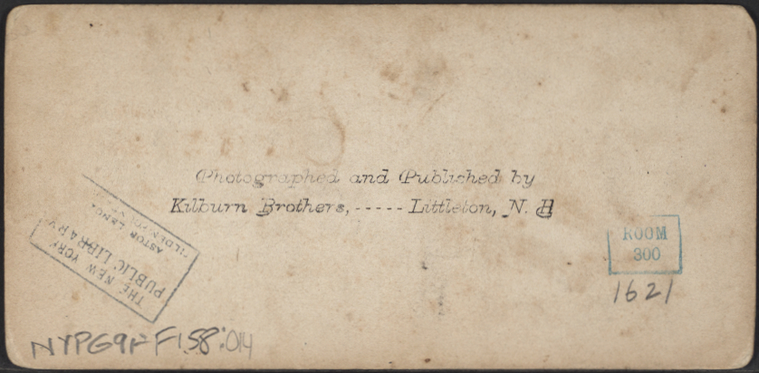 Photographed and Published by
Kilburn Brothers, ----- Littleton, N. H
THE NEW YORK
PUBLIC LIBRARY
ASTOR LENOX
TILDEN
ROOM
300
1621
NYPG92-F158:014